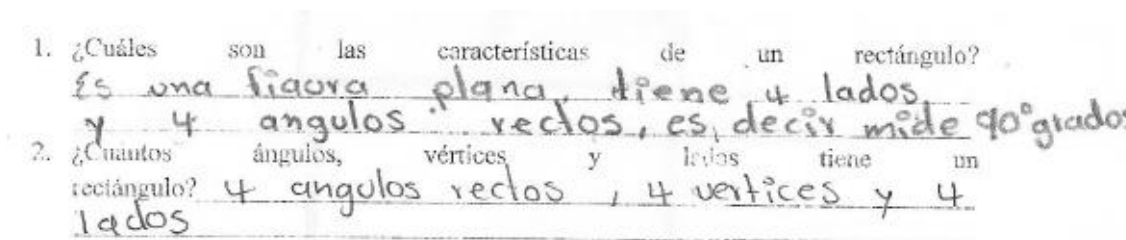 1. ¿Cuáles son las características de un rectángulo?
Es una figura plana, tiene 4 lados
y 4 angulos rectos, es, decir mide 90° grados
2. ¿Cuantos ángulos, vértices y lados tiene un
rectángulo? 4 angulos rectos, 4 vertices y 4
lados